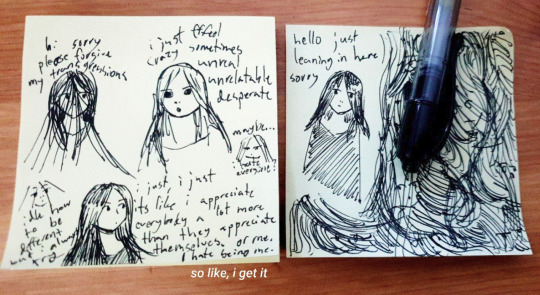 hi sorry
please forgive
my transgressions
i just feel
crazy sometimes
unreal
unrelatable
desperate
maybe...
i hate
everyone?
idk how
to be
different
but i always
try
i just, i just
its like i appreciate
everybody a lot more
than they appreciate
themselves. or me.
i hate being me.
hello just
leaning in here
sorry
so like, i get it